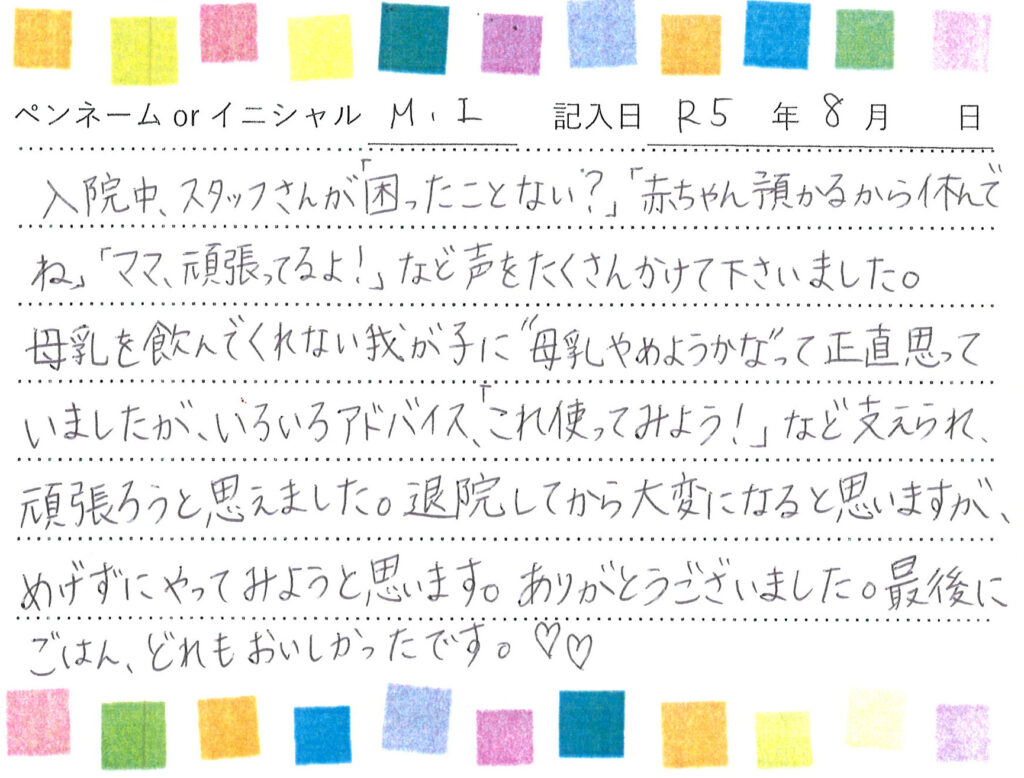 ペンネーム or イニシャル M.I 記入日 R5 年 8 月 日
入院中、スタッフさんが「困ったことない?」「赤ちゃん預かるから休んで
ね」「ママ、頑張ってるよ!」など声をたくさんかけて下さいました。
母乳を飲んでくれない我が子に“母乳やめようかな”って正直思って
いましたが、いろいろアドバイス、「これ使ってみよう!」など支えられ、
頑張ろうと思えました。退院してから大変になると思いますが、
めげずにやってみようと思います。ありがとうございました。最後に
ごはん、どれもおいしかったです。♡♡